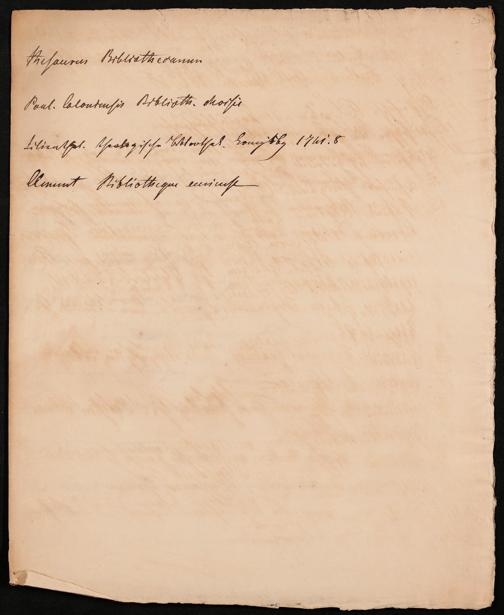 Thesaurus Bibliothecarum
Paul. Colomesii Biblioth. choisie
Lilienthal. theologische Bibliothek. Königsbg 1741. 8
Clement Bibliotheque curieuse